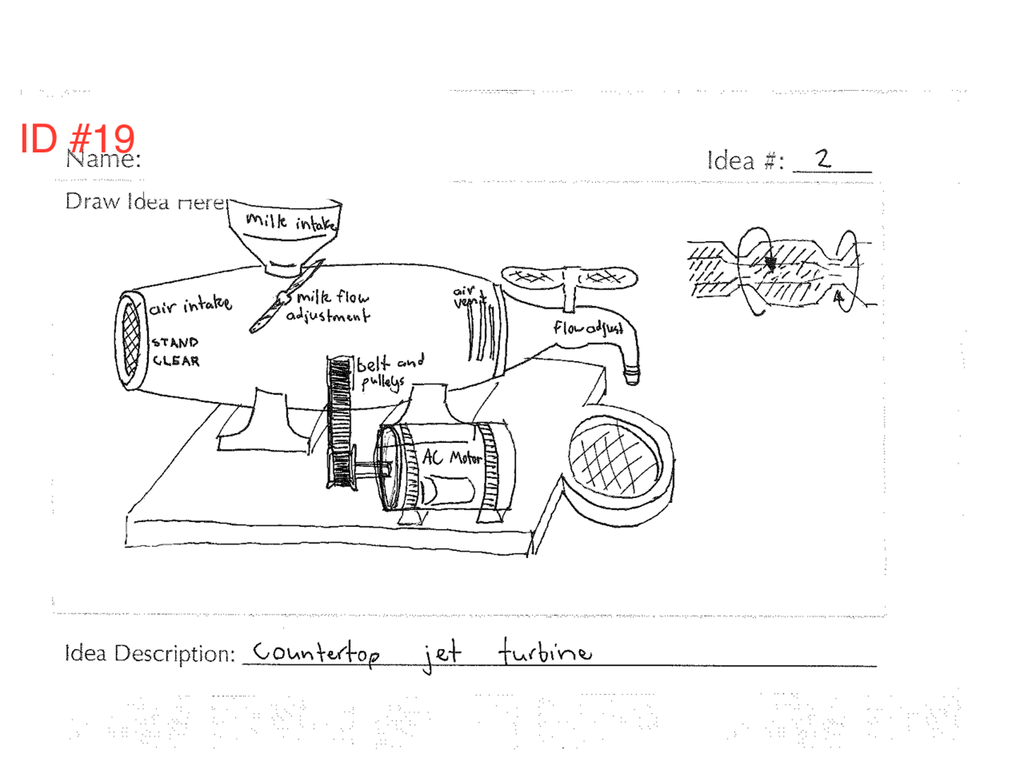 ID #19
Name:
Idea #: 2
Draw Idea Here
milk intake
air intake
milk flow
adjustment
air
vent
flow adjust
STAND
CLEAR
belt and
pulleys
AC Motor
Idea Description: Countertop jet turbine